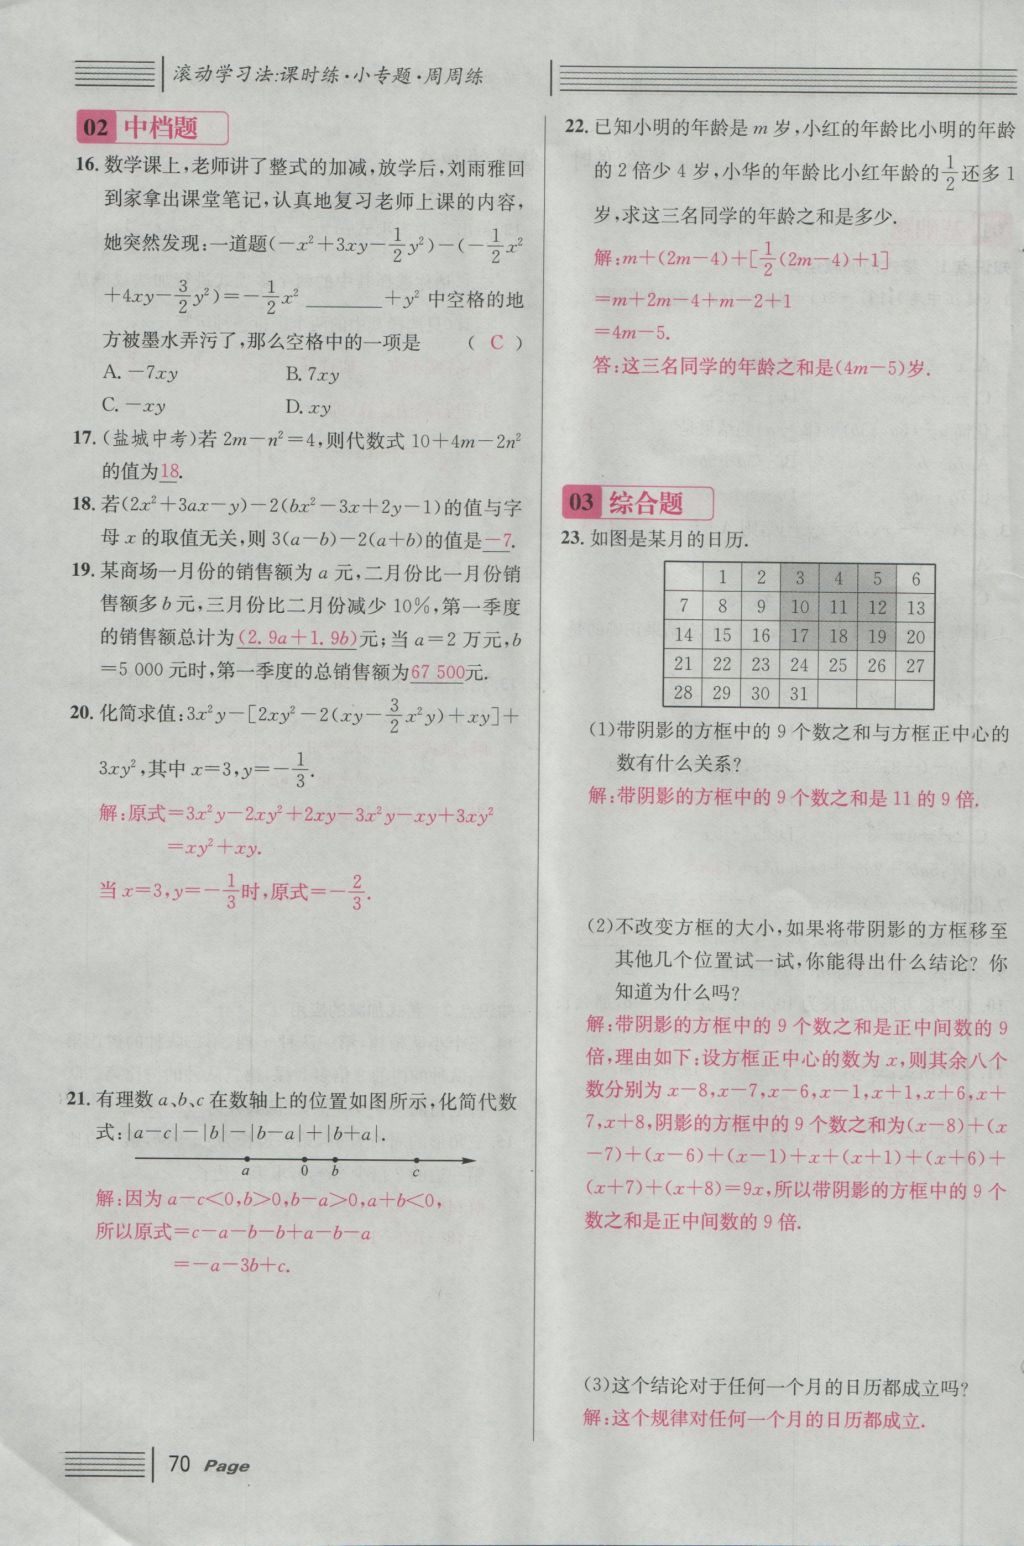 滚动学习法:课时练·小专题·周周练
02 中档题
16. 数学课上,老师讲了整式的加减,放学后,刘雨雅回
到家拿出课堂笔记,认真地复习老师上课的内容,
她突然发现:一道题(−x²+3xy−1/2y²)−(−1/2x²
+4xy−3/2y²)=−1/2x² ______+y² 中空格的地
方被墨水弄污了,那么空格中的一项是 ( C )
A. −7xy B. 7xy
C. −xy D. xy
17. (盐城中考)若 2m−n²=4,则代数式 10+4m−2n²
的值为18.
18. 若(2x²+3ax−y)−2(bx²−3x+2y−1)的值与字
母 x 的取值无关,则 3(a−b)−2(a+b)的值是−7.
19. 某商场一月份的销售额为 a 元,二月份比一月份销
售额多 b 元,三月份比二月份减少 10%,第一季度
的销售额总计为(2.9a+1.9b)元;当 a=2 万元,b
=5 000 元时,第一季度的总销售额为67 500元.
20. 化简求值:3x²y−[2xy²−2(xy−3/2x²y)+xy]+
3xy²,其中 x=3,y=−1/3.
解:原式=3x²y−2xy²+2xy−3x²y−xy+3xy²
=xy²+xy.
当 x=3,y=−1/3时,原式=−2/3.
21. 有理数 a、b、c 在数轴上的位置如图所示,化简代数
式:|a−c|−|b|−|b−a|+|b+a|.
a 0 b c
解:因为 a−c<0,b>0,b−a>0,a+b<0,
所以原式=c−a−b−b+a−b−a
=−a−3b+c.
70 Page
22. 已知小明的年龄是 m 岁,小红的年龄比小明的年龄
的 2 倍少 4 岁,小华的年龄比小红年龄的1/2还多 1
岁,求这三名同学的年龄之和是多少.
解:m+(2m−4)+[1/2(2m−4)+1]
=m+2m−4+m−2+1
=4m−5.
答:这三名同学的年龄之和是(4m−5)岁.
03 综合题
23. 如图是某月的日历.
1 2 3 4 5 6
7 8 9 10 11 12 13
14 15 16 17 18 19 20
21 22 23 24 25 26 27
28 29 30 31
(1)带阴影的方框中的 9 个数之和与方框正中心的
数有什么关系?
解:带阴影的方框中的 9 个数之和是 11 的 9 倍.
(2)不改变方框的大小,如果将带阴影的方框移至
其他几个位置试一试,你能得出什么结论? 你
知道为什么吗?
解:带阴影的方框中的 9 个数之和是正中间数的 9
倍,理由如下:设方框正中心的数为 x,则其余八个
数分别为 x−8,x−7,x−6,x−1,x+1,x+6,x+
7,x+8,阴影的方框中的 9 个数之和为(x−8)+(x
−7)+(x−6)+(x−1)+x+(x+1)+(x+6)+
(x+7)+(x+8)=9x,所以带阴影的方框中的 9 个
数之和是正中间数的 9 倍.
(3)这个结论对于任何一个月的日历都成立吗?
解:这个规律对任何一个月的日历都成立.